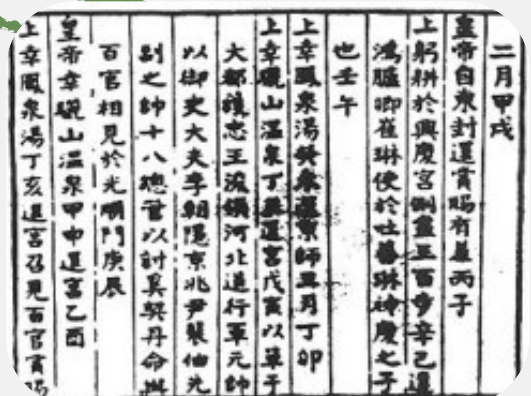 二月甲戌
皇帝自東封還賞賜有差丙子
上躬耕於興慶宮側盡三百步辛巳還
鴻臚卿崔琳使於吐蕃琳神慶之子
也壬午
上幸鳳泉湯癸未還京師五月丁卯
上幸驪山溫泉丁還宮戊寅以單于
大都護忠王浚領河北道行軍元帥
以御史大夫李朝隱京兆尹裴伷先
副之帥十八總管以討奚契丹命與
百官相見於光順門庚辰
皇帝幸驪山溫泉甲申還宮乙酉
上幸鳳泉湯丁亥還宮召見百官賞賜